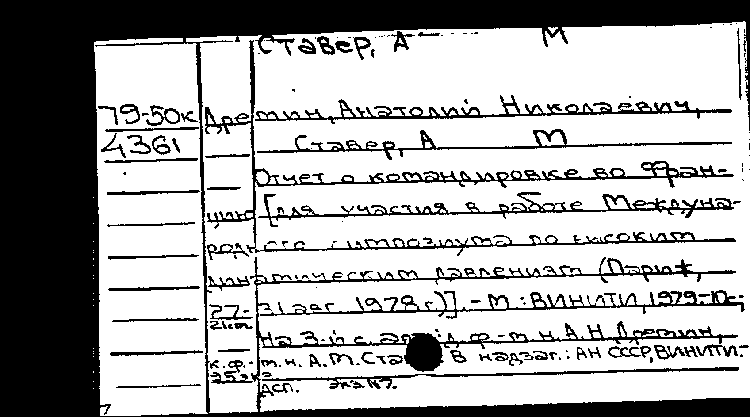 Ставер, А М
79-50к Дремин, Анатолий Николаевич,
4361 Ставер, А М
Отчет о командировке во Фран-
цию [для участия в работе Междуна-
родного симпозиума по высоким
динамическим давлениям (Париж,
27-31 авг. 1978 г.)]. - М : ВИНИТИ, 1979-10с;
21см
На 3-й с. авт.: д.ф.-м.н. А.Н Дремин,
к.ф.-м.н. А.М. Ста В надзаг.: АН СССР, ВИНИТИ.-
25экз
ДСП. экз N7.